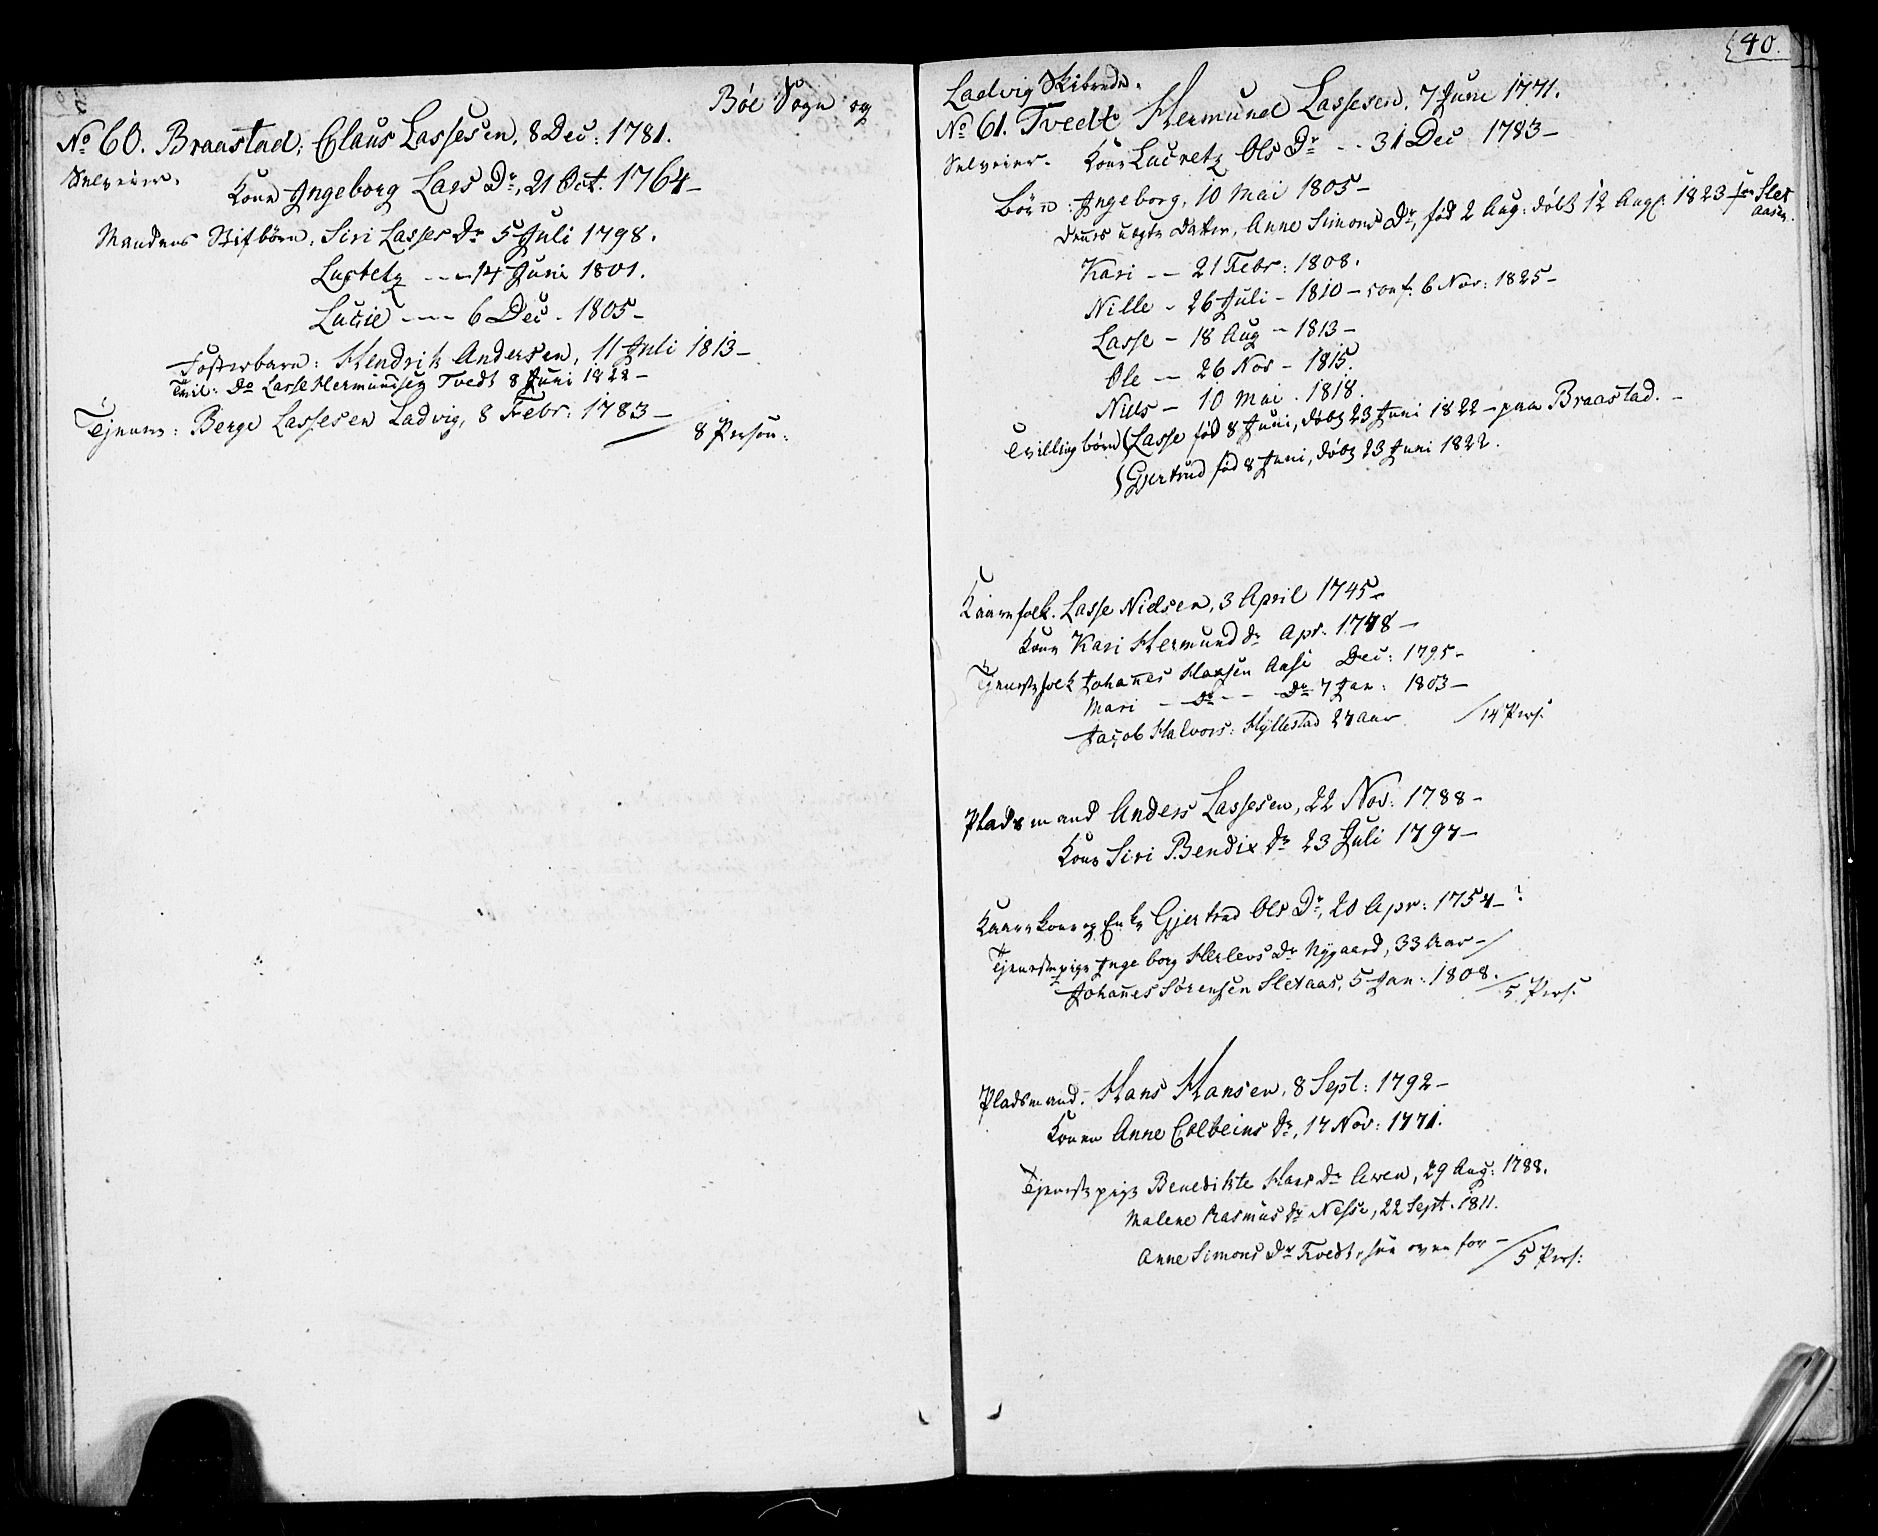 Bøe Sogn og
No 60. Braastad, Claus Lassesen, 8 Dec: 1781.
Selveier.
Kone Ingeborg Lars Dr, 21 Oct. 1764 –
Mandens Stifbørn, Siri Lasses Dr 5 Juli 1798.
Lucretz - - - 14 Juni 1801.
Lucie - - - 6 Dec - 1805 –
Fosterbarn: Hendrik Andersen, 11 Juli 1813 –
Tvil: Do Lasse Hermundsen Tvedt 8 Juni 1822 –
Tjener: Berge Lassesen Ladvig, 8 Febr: 1783 –
8 Person:
40.
Ladvig Skibrede.
No 61. Tvedt Hermund Lassesen, 7 Juni 1771.
Selveier. Kone Lucretz Ols Dr - - 31 Dec 1783 –
Børn: Ingeborg, 10 Mai 1805 –
Denes uegte Datter, Anne Simons Dr, fød 2 Aug: døbt 12 Aug: 1823 Slet
aasen.
Kari - - 21 Febr: 1808.
Nille - 26 Juli - 1810 – conf: 6 Nov: 1825 –
Lasse - 18 Aug - 1813 –
Ole - - 26 Nov - 1815.
Niels - 10 Mai - 1818.
Tvillingbørn { Lasse fød 8 Juni, døbt 23 Juni 1822 – paa Braastad. –
{ Gjertrud fød 8 Juni, døbt 23 Juni 1822.
Kaarefolk. Lasse Nielsen, 3 April 1745 –
Kone Kari Hermund dr Apr: 1748 –
Tjenestefolk Johannes Hansen Aase Dec: 1795 –
Mari - Do - - Do 7 Jan: 1803 –
Jacob Halvors: Hyllestad 27 Aar
/ 14 Pers:
Pladsmand Anders Lassesen, 22 Nov: 1788 –
Kone Siri P.Bendix dr 23 Juli 1797 –
Kaarekone og Enke Gjertrud Ols Dr, 20 Apr: 1754 –
Tjenestepige Ingeborg Herlevs dr Nygaard, 33 Aar –
Johannes Sørensen Sletaas, 5 Jan: 1808.
/ 5 Pers:
Pladsmand. Hans Hansen, 8 Sept: 1792 –
Konen Anne Colbeins dr, 17 Nov: 1771.
Tjenestepige Benedikte Hans dr Aren, 29 Aug: 1788.
Malene Rasmus dr Nesse, 22 Sept. 1811.
Anne Simons dr Tvedt, see ovenfor –
/ 5 Pers: